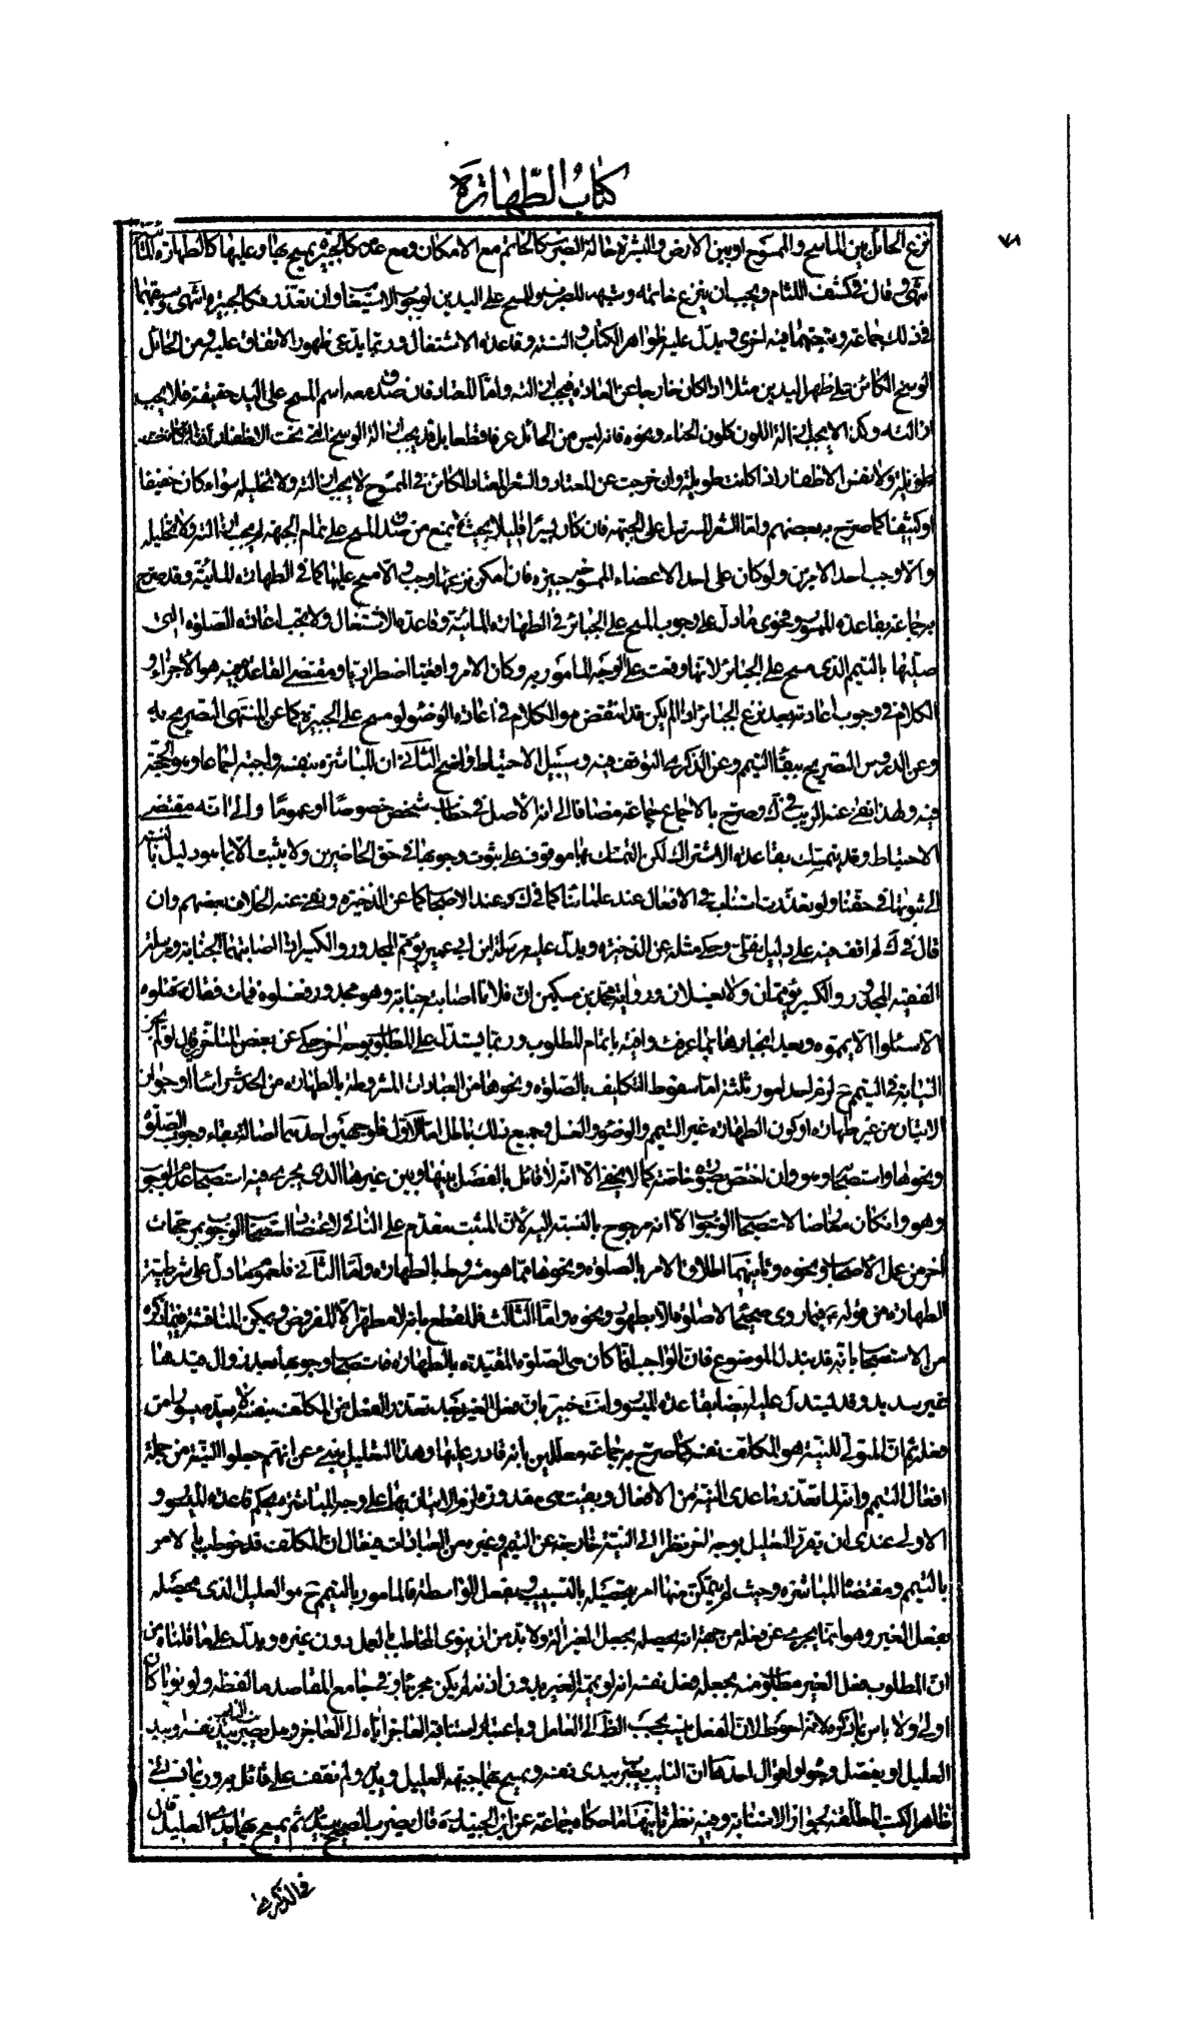 كتاب الطهارة
٧٨
نزع الحائل بين الماسح والممسوح او بين الارض والبشرة حالة الضرب كالخاتم مع الامكان ومع عدمه كالجبيرة يمسح بها وعليها كالطهارة المائية
انتهى وقال في كشف اللثام ويجب ان ينزع خاتمه وشبهه للضرب والمسح على اليدين لوجوب الاستيعاب وان تعذر فكالجبيرة انتهى وسبقهما
في ذلك جماعة وتبعهما فيه اخرى ويدل عليه ظواهر الكتاب والسنة وقاعدة الاشتغال وربما يدعى ظهور الاتفاق عليه ومن الحائل
الوسخ الكائن على ظهر اليدين مثلا اذا كان خارجا عن العادة فيجب ازالته واما المعتاد فان صدق معه اسم المسح على اليد حقيقة فلا يجب
ازالته وكذا لا يجب ازالة اللون كلون الحناء ونحوه فانه ليس من الحائل عرفا قطعا بل قد يجب ازالة الوسخ الذي تحت الاظفار اذا كانت
طويلة ولا نفس الاظفار اذا كانت طويلة وان خرجت عن المعتاد والشعر المعتاد الكائن في الممسوح لا يجب ازالته ولا تخليله سواء كان خفيفا
او كثيفا كما صرح به بعضهم واما الشعر المسترسل على الجبهة فان كان يسيرا قليلا بحيث لا يمنع من صدق المسح على تمام الجبهة لم يجب ازالته ولا تخليله
والا وجب احد الامرين ولو كان على احد الاعضاء الممسوحة جبيرة فان امكن نزعها وجب والا مسح عليها كما في الطهارة المائية وقد صرح
به جماعة بقاعدة الميسور وفحوى ما دل على وجوب المسح على الجبائر في الطهارة المائية وقاعدة الاشتغال ولا يجب اعادة الصلوة التى
صليها بالتيمم الذى مسح على الجبائر لانها وقعت على الوجه المأمور به وكان الامر واقعيا اضطراريا ومقتضى القاعدة فيه هو الاجزاء و
الكلام في وجوب اعادته بعد نزع الجبائر اذا لم يكن قد انتقض هو الكلام في اعادة الوضوء لو مسح على الجبيرة كما عن المنتهى التصريح به
وعن الدروس التصريح ببقاء التيمم وعن الذكرى التوقف فيه وسبيل الاحتياط واضح الثاني ان المباشرة بنفسه واجبة اجماعا وهو الحجة
فيه ولهذا نفى عنه الريب في ك وصرح بالاجماع جماعة مضافا الى انه الاصل في خطاب شخص خصوصا او عموما والى انه مقتضى
الاحتياط وقد يتمسك بقاعدة الاشتراك لكن التمسك بها موقوف على ثبوت وجوبها في حق الحاضرين ولا يثبت الا بما هو دليل بالنسبة
الى ثبوتها في حقنا ولو تعذرت استناب في الافعال عند علمائنا كما في ك وعند الاصحاب كما عن الذخيرة ونفى عنه الخلاف بعضهم وان
قال في ك لم اقف فيه على دليل نقلى وحكى مثله عن الذخيرة ويدل عليه مرسلة ابن ابى عمير يؤمم المجدور والكسير اذا اصابتهما الجنابة ومرسلة
الفقيه المجدور والكسير يؤممان ولا يغسلان ورواية محمد بن مسكين ان فلانا اصابته جنابة وهو مجدور فغسلوه فمات فقال قتلوه
الا سئلوا الا يمموه وبعد انجبارها بما عرفت وافية باتمام المطلوب وربما يستدل على المطلوب بوجه اخر حكى عن بعض المتاخرين وهو لو لم يجز
النيابة في التيمم ح لزم احد امور ثلثة اما سقوط التكليف بالصلوة ونحوها من العبادات المشروطة بالطهارة من الحدث راسا او جواز
الاتيان من غير طهارة او كون الطهارة غير التيمم والوضوء والغسل وجميع ذلك باطل اما الاول فلوجهين احدهما اصالة بقاء وجوب الصلوة
ونحوها واستصحابه وهو وان اختص بصورة خاصة كما لا يخفى الا انه لا قائل بالفصل بينها وبين غيرها الذى يجرى فيه استصحاب عدم الوجوب
وهو وان كان معارضا لاستصحاب الوجوب الا انه مرجوح بالنسبة اليه لان المثبت مقدم على النافي لاعتضاد استصحاب الوجوب بمرجحات
اخر من عمل الاصحاب ونحوه وثانيهما اطلاق الامر بالصلوة ونحوها مما هو مشروط بالطهارة واما الثاني فلعموم ما دل على شرطية
الطهارة من قوله ع فيما روى صحيحا لا صلوة الا بطهور ونحوه واما الثالث فللقطع بانه لا مطهر الا المفروض ويمكن المناقشة فيما ذكره
من الاستصحاب بانه قد تبدل الموضوع فان الواجب انما كان هى الصلوة المقيدة بالطهارة فاستصحاب وجوبها بعد زوال قيدها
غير سديد وقد يستدل عليه ايضا بقاعدة الميسور وانت خبير بان فعل الغير بعد تعذر الفعل من المكلف بنفسه لا يعد ميسورا من
فعله ثم ان المتولى للنية هو المكلف نفسه كما صرح به جماعة معللين بانه قادر عليها وهذا التعليل ينبئ عن انهم جعلوا النية من جملة
افعال التيمم وانه لما تعذر ما عدى النية من الافعال وبقيت هى مقدورة لزم الاتيان بها على وجه المباشرة بحكم قاعدة الميسور و
الاولى عندى ان يقرر التعليل بوجه اخر نظرا الى ان النية خارجة عن التيمم وغيره من العبادات فيقال ان المكلف قد خوطب بالامر
بالتيمم ومقتضاه المباشرة وحيث لم يتمكن منها امر بتحصيله بالتسبيب وبفعل الواسطة فالمامور بالتيمم ح هو العليل الذى يحصله
بفعل الغير وهو انما يجزى عن فعله من جهة انه يحصله بجعل الغير الة ولا بد من ان ينوى المخاطب بالعمل دون غيره ويدل على ما قلناه من
ان المطلوب فعل الغير مطلوب منه بجعله فعل نفسه انه لو يممه الغير بدون اذنه لم يكن مجزيا وفي جامع المقاصد ما لفظه ولو نويا كان
اولى ولا باس بما ذكره لانه احوط لان الفعل ينسب بحسب الظاهر الى العامل وباعتبار استنابة العاجز اياه الى العاجز وهل يضرب النائب بيد نفسه او بيد
العليل او يفصل وجوه او اقوال احدها ان النائب يضرب بيدى نفسه ويمسح بهما جبهة العليل ويديه ولم نقف على قائل به وربما نسب الى
ظاهر الكتب المطلقة لجواز الاستنابة وفيه نظر ثانيها ما حكاه جماعة عن ابن الجنيد ره قال يضرب الصحيح بيديه ثم يمسح بهما يدى العليل قال
في الذكرى